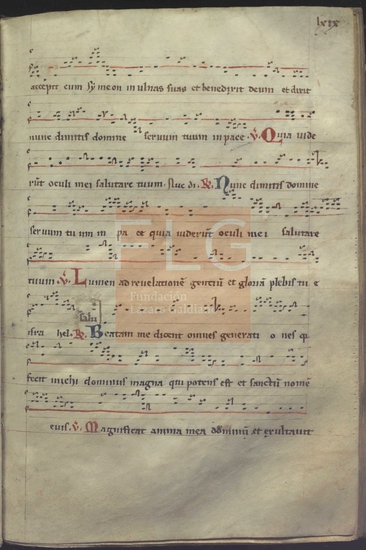 lxix
accepit eum Symeon in ulnas suas et benedixit deum et dixit
nunc dimittis domine servum tuum in pace. V. Quia vide
runt oculi mei salutare tuum. R. Nunc dimittis domine
servum tuum in pa ce quia viderunt oculi mei salutare
FLG
tuum V. Lumen ad revelationē gentiū et gloriā plebis tu e
Fundación
Lázaro Galdiano
isra hel. R. Beatam me dicent omnes generati o nes q
fecit michi dominus magna qui potens est et sanctū nomē
eius. V. Magnificat anima mea dominū et exultavit